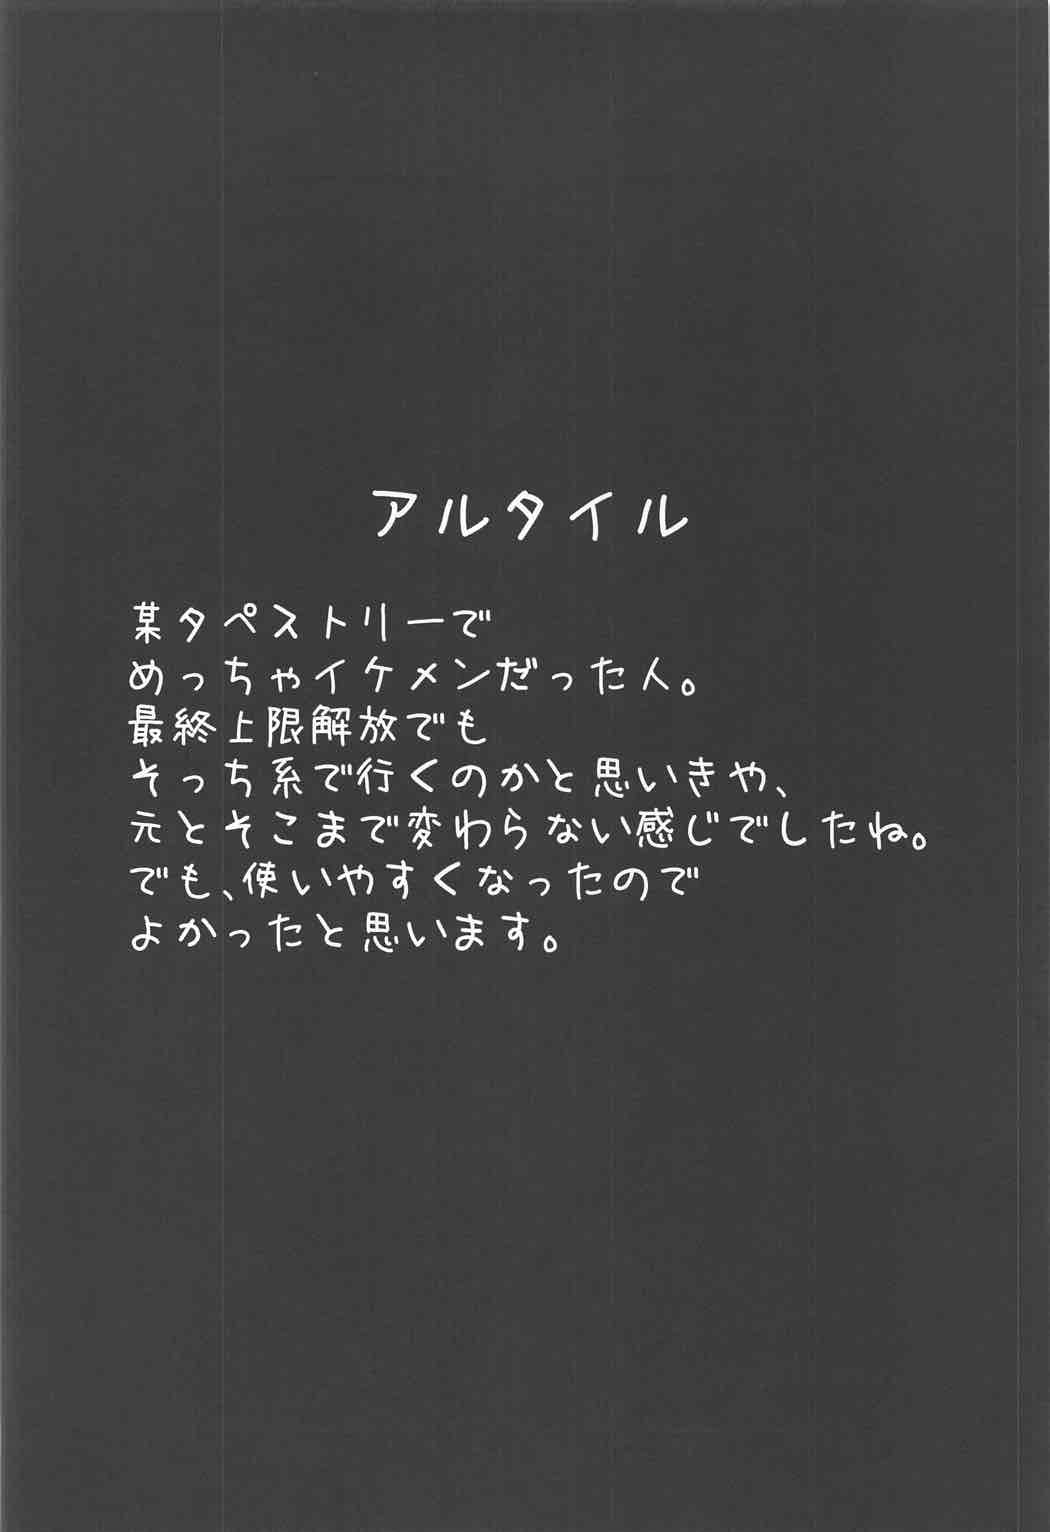 アルタイル
某タペストリーで
めっちゃイケメンだった人。
最終上限解放でも
そっち系で行くのかと思いきや、
元とそこまで変わらない感じでしたね。
でも、使いやすくなったので
よかったと思います。